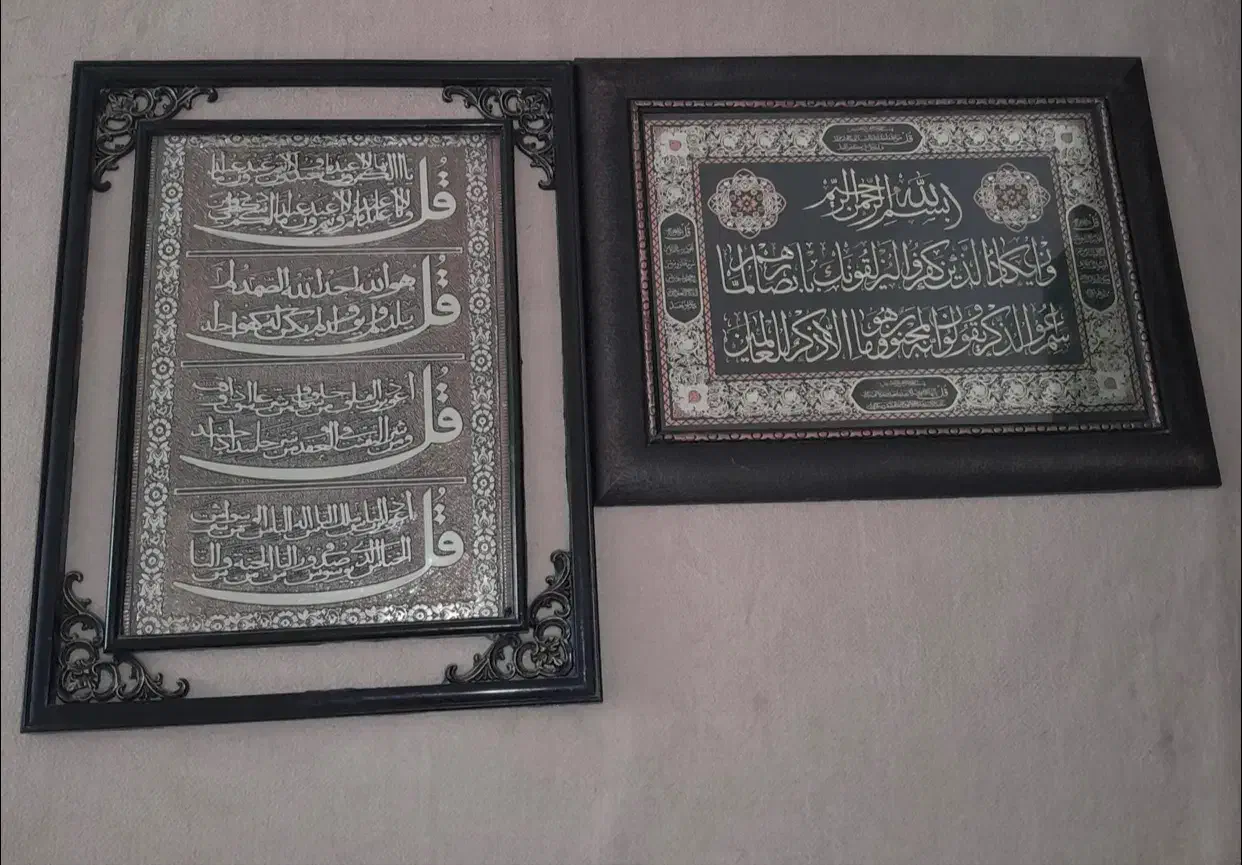 قُل يا ايها الكافرون لا اعبد ما تعبدون ولا انتم عابدون ما اعبد
ولا انا عابد ما عبدتم ولا انتم عابدون ما اعبد لكم دينكم ولي دين
قُل هو الله احد الله الصمد لم
يلد ولم يولد ولم يكن له كفوا احد
قُل اعوذ برب الفلق من شر ما خلق ومن شر غاسق اذا وقب
ومن شر النفاثات في العقد ومن شر حاسد اذا حسد
قُل اعوذ برب الناس ملك الناس اله الناس من شر الوسواس
الخناس الذي يوسوس في صدور الناس من الجنة والناس
قل
بسم الله الرحمن الرحيم
وان يكاد الذين كفروا ليزلقونك بابصارهم لما
سمعوا الذكر ويقولون انه لمجنون وما هو الا ذكر للعالمين
قل
قل
قل